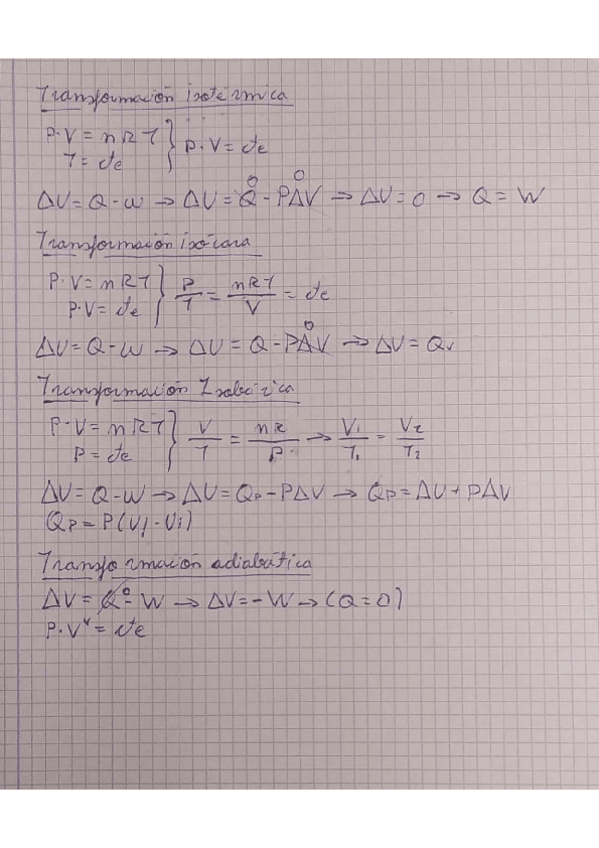 Transformación isotérmica
P·V = nRT } P·V = cte
T = cte
ΔU = Q - W → ΔU = Q⁰ - PΔV⁰ → ΔU = 0 → Q = W
Transformación isócora
P·V = nRT } P/T = nRT/V = cte
P·V = cte
ΔU = Q - W → ΔU = Q - PΔV⁰ → ΔU = Qv
Transformación Isobárica
P·V = nRT } V/T = nR/P → V₁/T₁ = V₂/T₂
P = cte
ΔU = Q - W → ΔU = Qp - PΔV → Qp = ΔU + PΔV
Qp = P(Uf - Ui)
Transformación adiabática
ΔU = Q⁰ - W → ΔU = -W → (Q = 0)
P·V^γ = cte